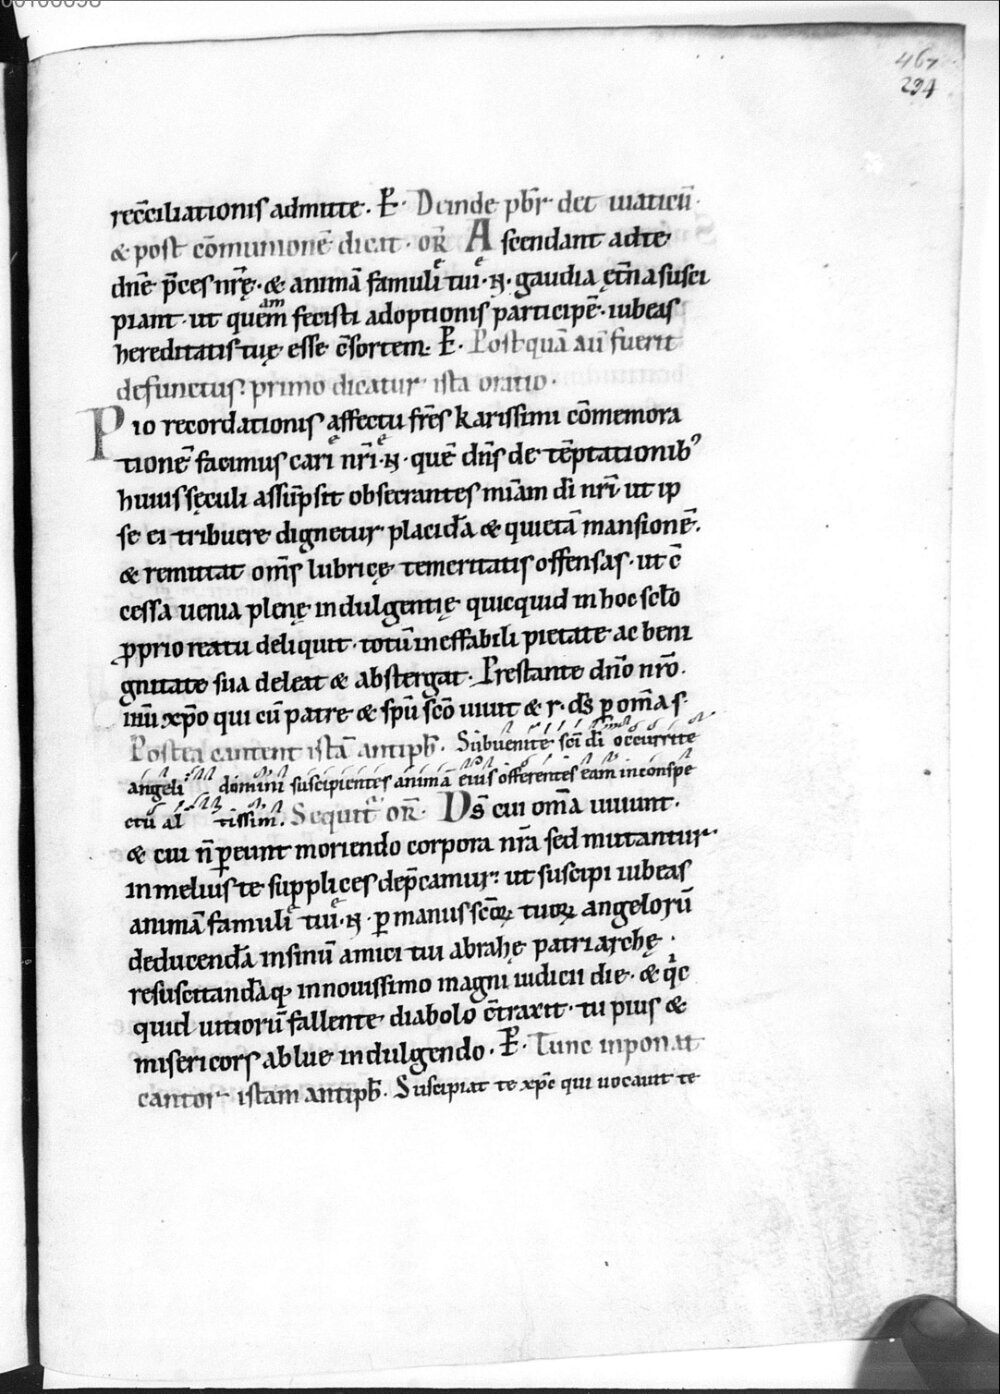 467
294
rec̄ciliationis admitte. P̱. Deinde pbr̄ det uiaticū.
& post cōmunionē dicit. or̄. Ascendant ad te
dnē p̄ces nr̄ę. & animā famuli tui .N. gaudia ętn̄a susci
piant. ut quem fecisti adoptionis participē. iubeas
hereditatis tuę esse c̄sortem. P̱. Postquā aū fuerit
defunctus. primo dicatur ista oratio.
Pio recordationis affectu fr̄es karissimi cōmemora
tionē facimus cari nr̄i .N. quē dn̄s de tēptationib;
huius sęculi assūpsit obsecrantes miām dī nr̄i ut ip
se ei tribuere dignetur placidā & quietā mansionē.
& remittat om̄s lubricę temeritatis offensas. ut c̄
cessa uenia plenę indulgentię quicquid in hoc scl̄o
ꝓprio reatu deliquit. totū ineffabili pietate ac beni
gnitate sua deleat & abstergat. Prestante dn̄o nr̄o.
ihū xp̄o qui cū patre & sp̄u scō uiuit & r. ds̄ ꝑ om̄a s.
Postea cantent istā antiph̄. Subuenite sc̄i dī occurrite
angeli domini suscipientes animā eius offerentes eam in conspe
ctū al tissimi. Sequit̄ or̄. Ds̄ cui om̄a uiuunt.
& cui n̄ ꝑeunt moriendo corpora nr̄a sed mutantur
in melius te supplices dep̄camur. ut suscipi iubeas
animā famuli tui .N. ꝑ manus scōꝝ tuoꝝ angelorū
deducendā in sinū amici tui abrahę patriarchę.
resuscitandāq; in nouissimo magni iudicii die. & qͥc
quid uitiorū fallente diabolo c̄traxit. tu pius &
misericors ablue indulgendo. P̱. Tunc inponat
cantor istam antiph̄. Suscipiat te xp̄c qui uocauit te